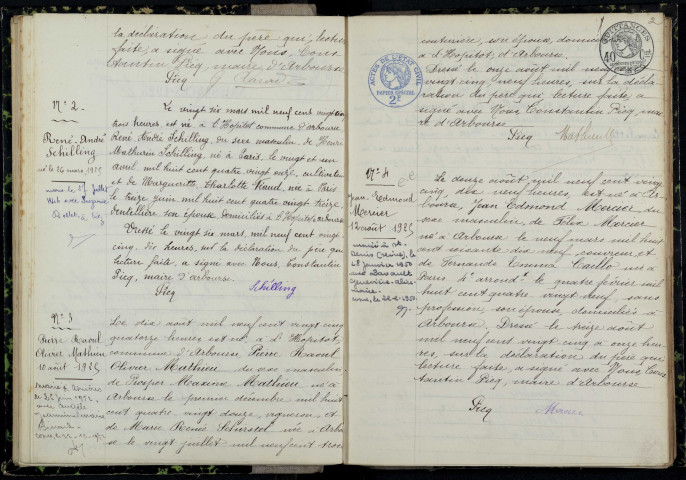 la déclaration du père qui, lecture
faite, a signé avec Nous, Cons
tantin Picq, maire d'Arbourse
Picq
N° 2
René André
Schilling
né le 26 mars 1925
marié le 27 juillet
Le vingt six mars mil neuf cent vingt cinq
trois heures est né à l'Hopitot commune d'arbourse
René André Schilling, du sexe masculin de Henri
Mathurin Schilling, né à Paris, le vingt et un
avril mil huit cent quatre vingt onze, cultivateur
et de Marguerite, Charlotte née à Paris
le treize juin mil huit cent quatre vingt treize
dentellière son épouse domiciliés à l'Hopitot, arbourse
Dressé le vingt six mars, mil neuf cent vingt
cinq, dix heures, sur la déclaration du père qui
lecture faite, a signé avec Nous, Constantin
Picq, maire d'arbourse
Picq Schilling
N° 3
Pierre Raoul
Olivier Mathieu
10 août 1925
Le dix août mil neuf cent vingt cinq
quatorze heures est né à l'Hopitot
commune d'Arbourse, Pierre Raoul
Olivier Mathieu du sexe masculin
de Prosper Maxime Mathieu né à
Arbourse le premier décembre mil huit
cent quatre vingt douze, vigneron et
de Marie née à Arbour
se le vingt juillet mil neuf cent trois
2
couturière, son épouse, domiciliés
à l'Hopitot, d'Arbourse.
Dressé le onze août mil neuf cent
vingt cinq, neuf heures, sur la décla
ration du père qui lecture faite, a
signé avec Nous Constantin Picq, mai
re d'Arbourse
Picq Mathieu
ACTES DE L'ÉTAT CIVIL
PAPIER SPÉCIAL
2F
QUITTANCES
40
N° 4
Jean Edmond
Mercier
12 août 1925
marié à St
Denis (Seine), le
28 janvier 1950
avec
Le douze août mil neuf cent vingt
cinq, dix neuf heures, est né à Ar
bourse, Jean Edmond Mercier du
sexe masculin, de Félix Mercier
né à Arbourse le neuf mars mil huit
cent soixante dix neuf, couvreur et
de Fernande Emma née à
Paris 14e arrondt le quatre février mil
huit cent quatre vingt neuf, sans
profession, son épouse, domiciliés à
Arbourse. Dressé le treize août
mil neuf cent vingt cinq à onze heu
res, sur la déclaration du père qui
lecture faite, a signé avec Nous Cons
tantin Picq, maire d'Arbourse
Picq Mercier